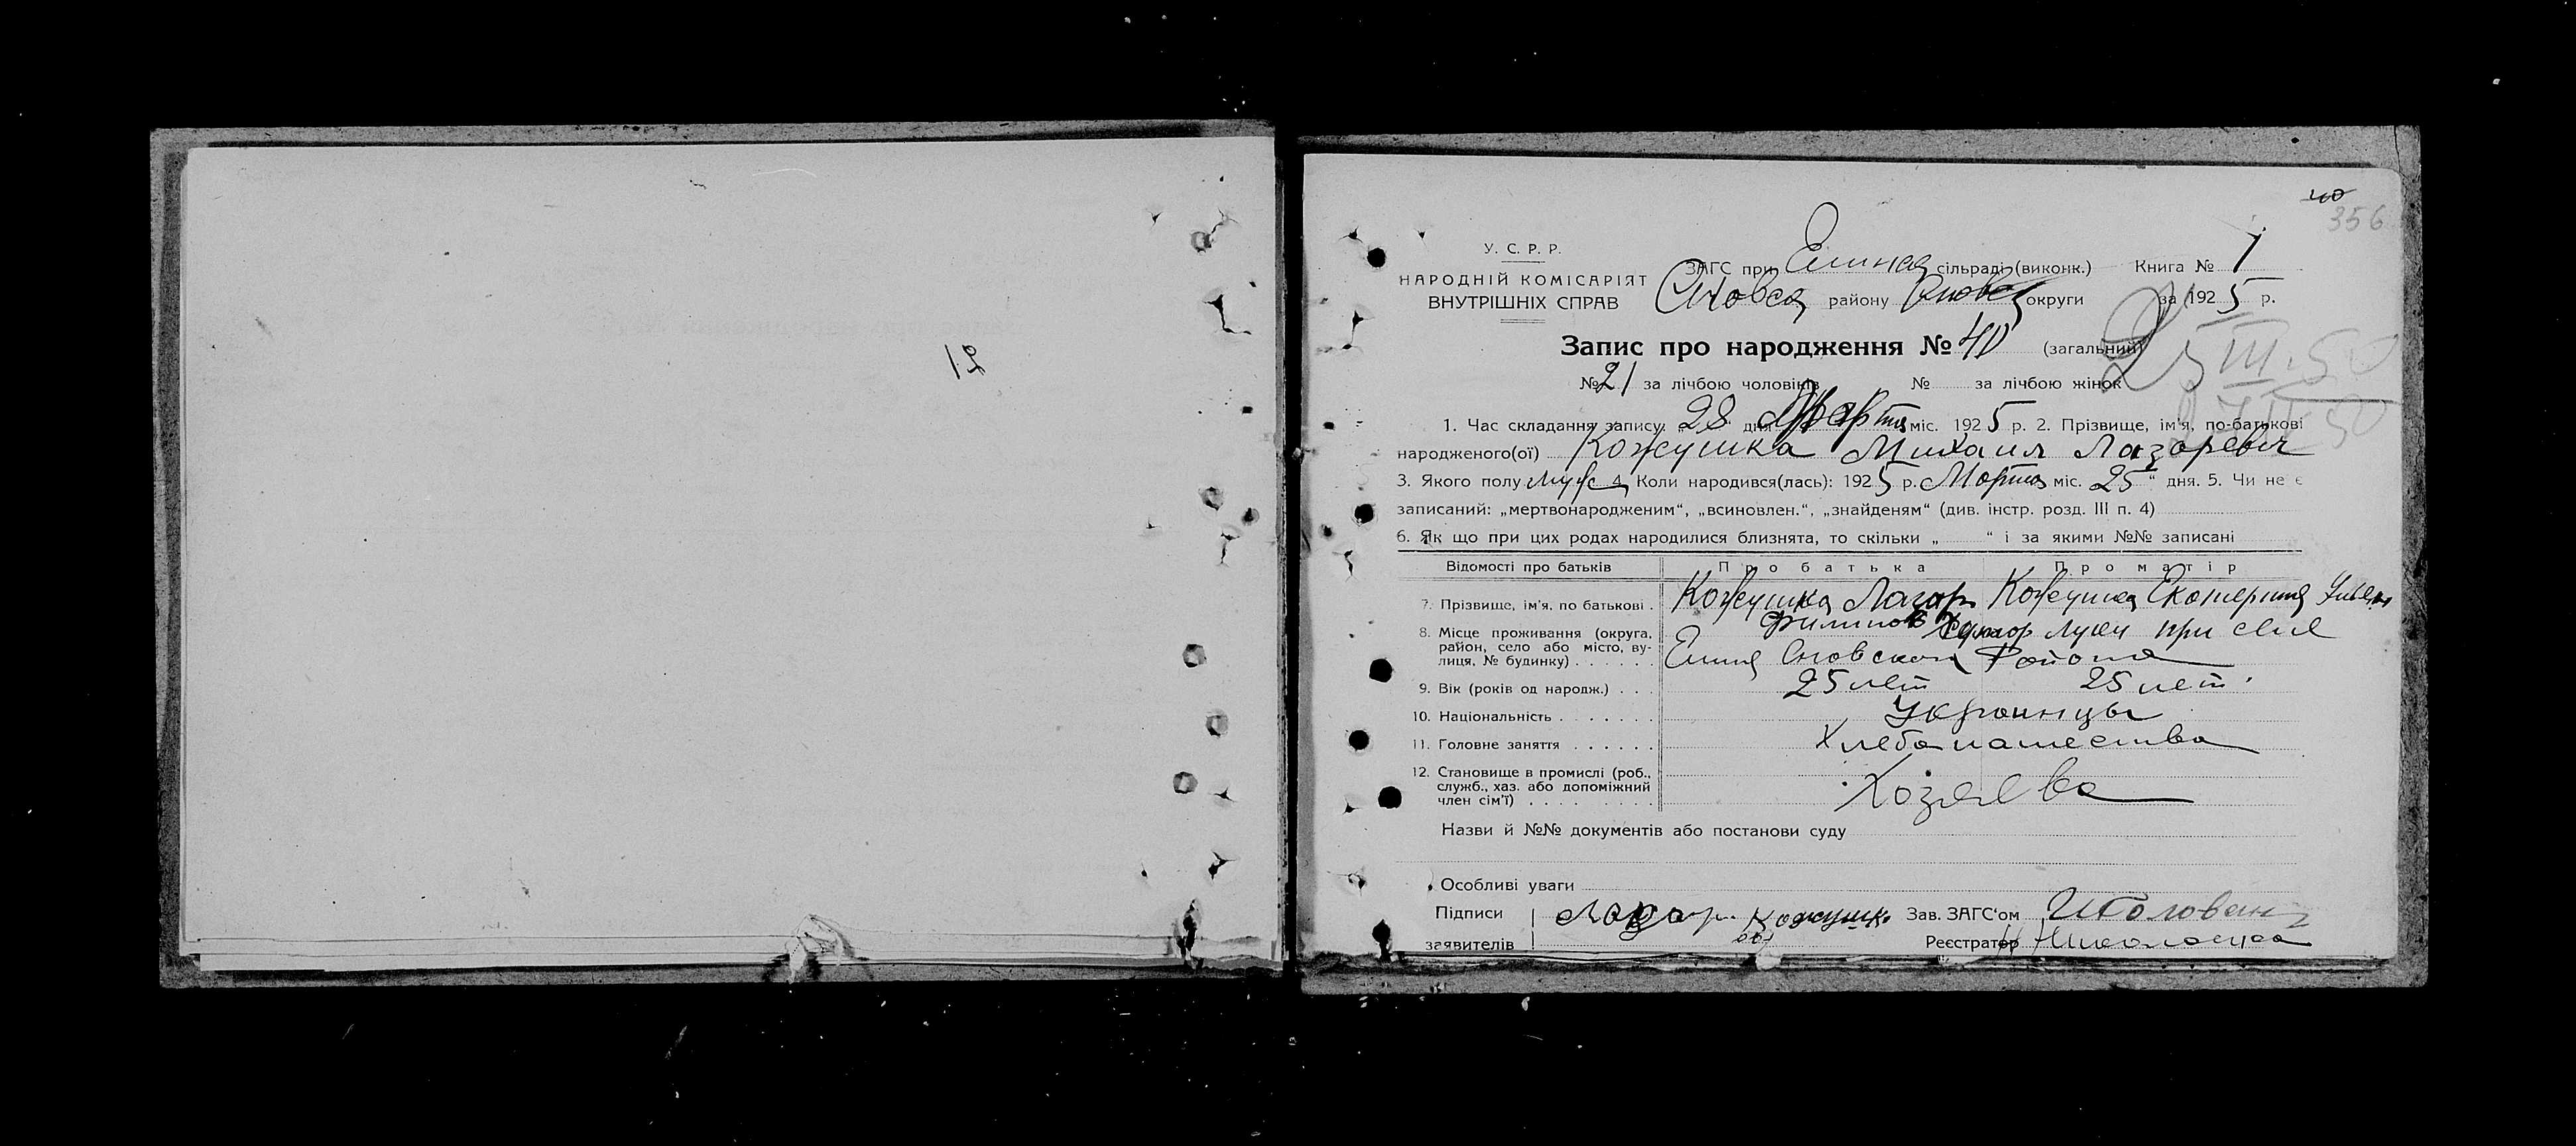 21
40
356
У. С. Р. Р.
НАРОДНІЙ КОМІСАРІЯТ
ВНУТРІШНІХ СПРАВ
ЗАГС при сільраді (виконк.) Книга № 1
району округи за 1925 р.
Запис про народження № 40 (загальний)
№ 21 за лічбою чоловіків № за лічбою жінок
25 III. 50
1. Час складання запису: „ 28 " дня Марта міс. 1925 р. 2. Прізвище, ім'я, по-батькові
народженого(ої) Кожушка Михаил Лазоревич
3. Якого полу муж 4. Коли народився(лась): 1925 р. Марта міс. 25 " дня. 5. Чи не є
записаний: „мертвонародженим", „всиновлен.", „знайденям" (див. інстр. розд. III п. 4)
6. Як що при цих родах народилися близнята, то скільки „ " і за якими №№ записані
Відомості про батьків Про батька Про матір
7. Прізвище, ім'я, по батькові . Кожушка Лазар Кожушка Екатерина
8. Місце проживання (округа, Хутор Луки при селе
район, село або місто, ву-
лиця, № будинку) . . . . . . Сновского Района
9. Вік (років од народж.) . . . 25 лет 25 лет.
10. Національність . . . . . . . Украинцы
11. Головне заняття . . . . . . Хлебопашества
12. Становище в промислі (роб.,
служб., хаз. або допоміжний Хозяева
член сім'ї) . . . .
Назви й №№ документів або постанови суду
Особливі уваги
Підписи Лазар Кожушко Зав. ЗАГС'ом
заявителів Реєстратор